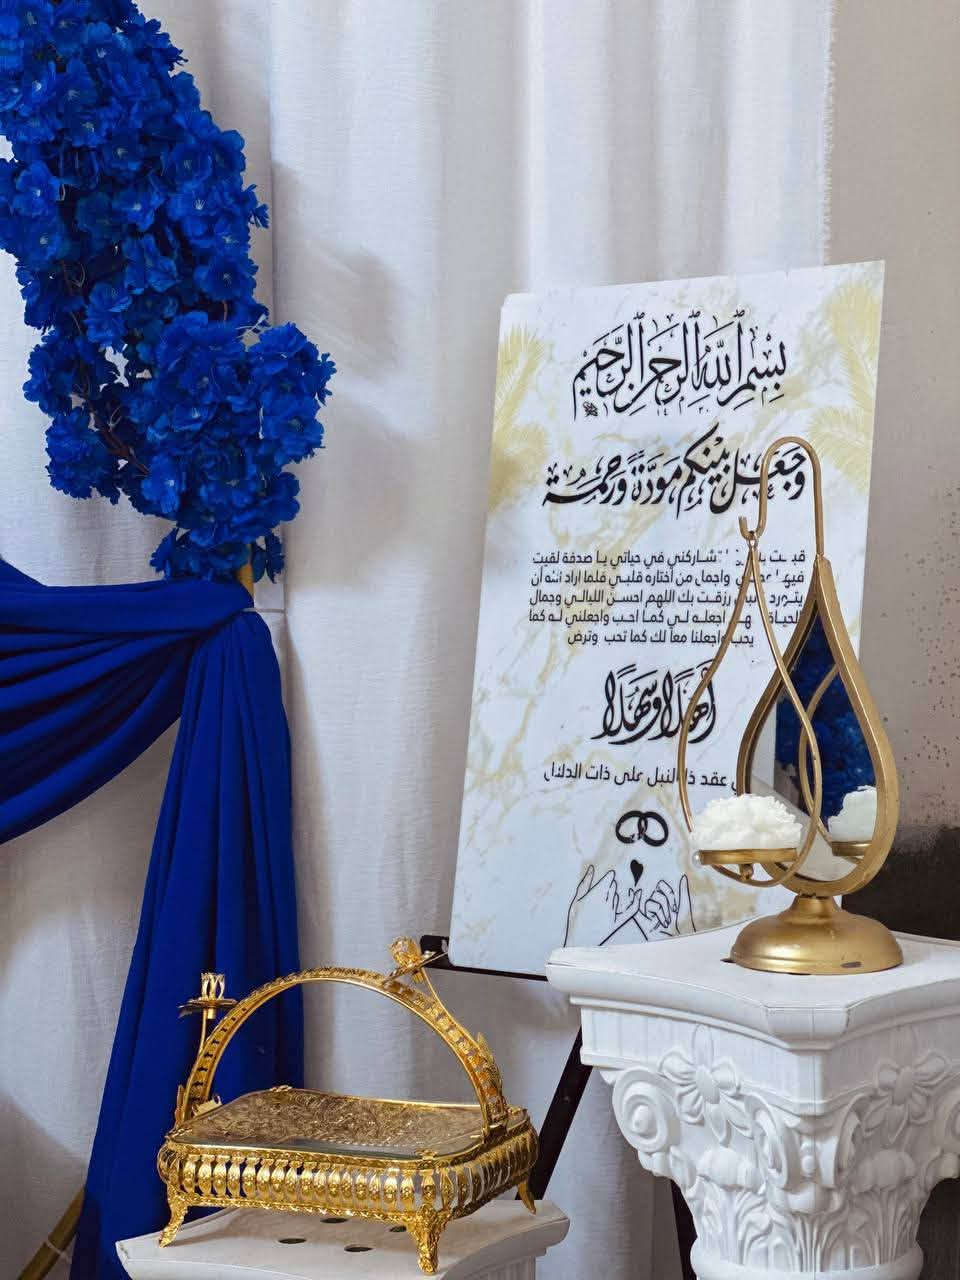 بِسْمِ ٱللَّهِ ٱلرَّحْمَٰنِ ٱلرَّحِيمِ
وَجَعَلَ بَيْنَكُم مَوَدَّةً وَرَحْمَةً
تشاركني في حياتي يا صدفة لقيت
فيها واجمل من أختاره قلبي فلما اراد الله أن
رزقت بك اللهم احسن الليالي وجمال
الحياة اجعله لي كما احب واجعلني له كما
يحب واجعلنا معا لك كما تحب وترض
أَهْلًا وَسَهْلًا
عقد ذا النبل على ذات الدلال